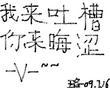 我来吐槽
你来晦涩
-V-~~
09.7/6